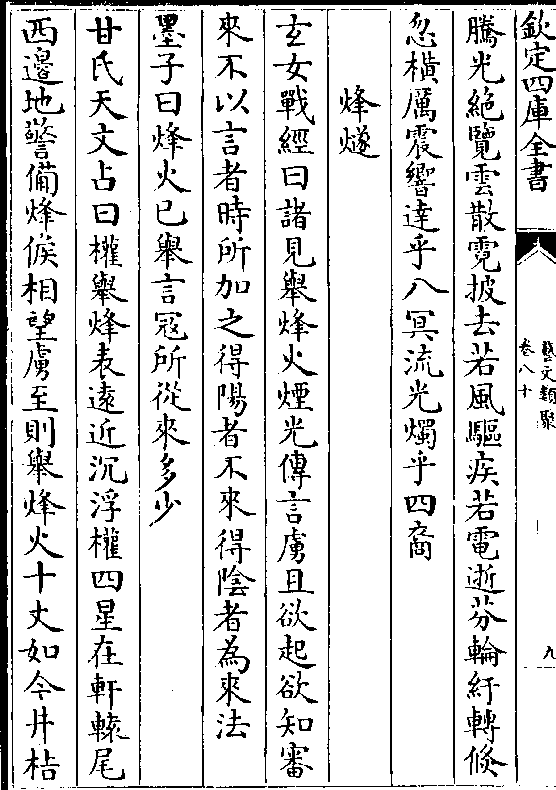 欽定四庫全書
藝文類聚
卷八十
九
騰光絶覽雲散霓披去若風驅疾若電逝芬輪紆轉倐
忽橫厲震響達乎八冥流光燭乎四裔
烽燧
玄女戰經曰諸見舉烽火煙光傳言虜且欲起欲知審
來不以言者時所加之得陽者不來得陰者為來法
墨子曰烽火已舉言寇所從來多少
甘氏天文占曰權舉烽表遠近沉浮權四星在軒轅尾
西邊地警備烽候相望虜至則舉烽火十丈如今井桔